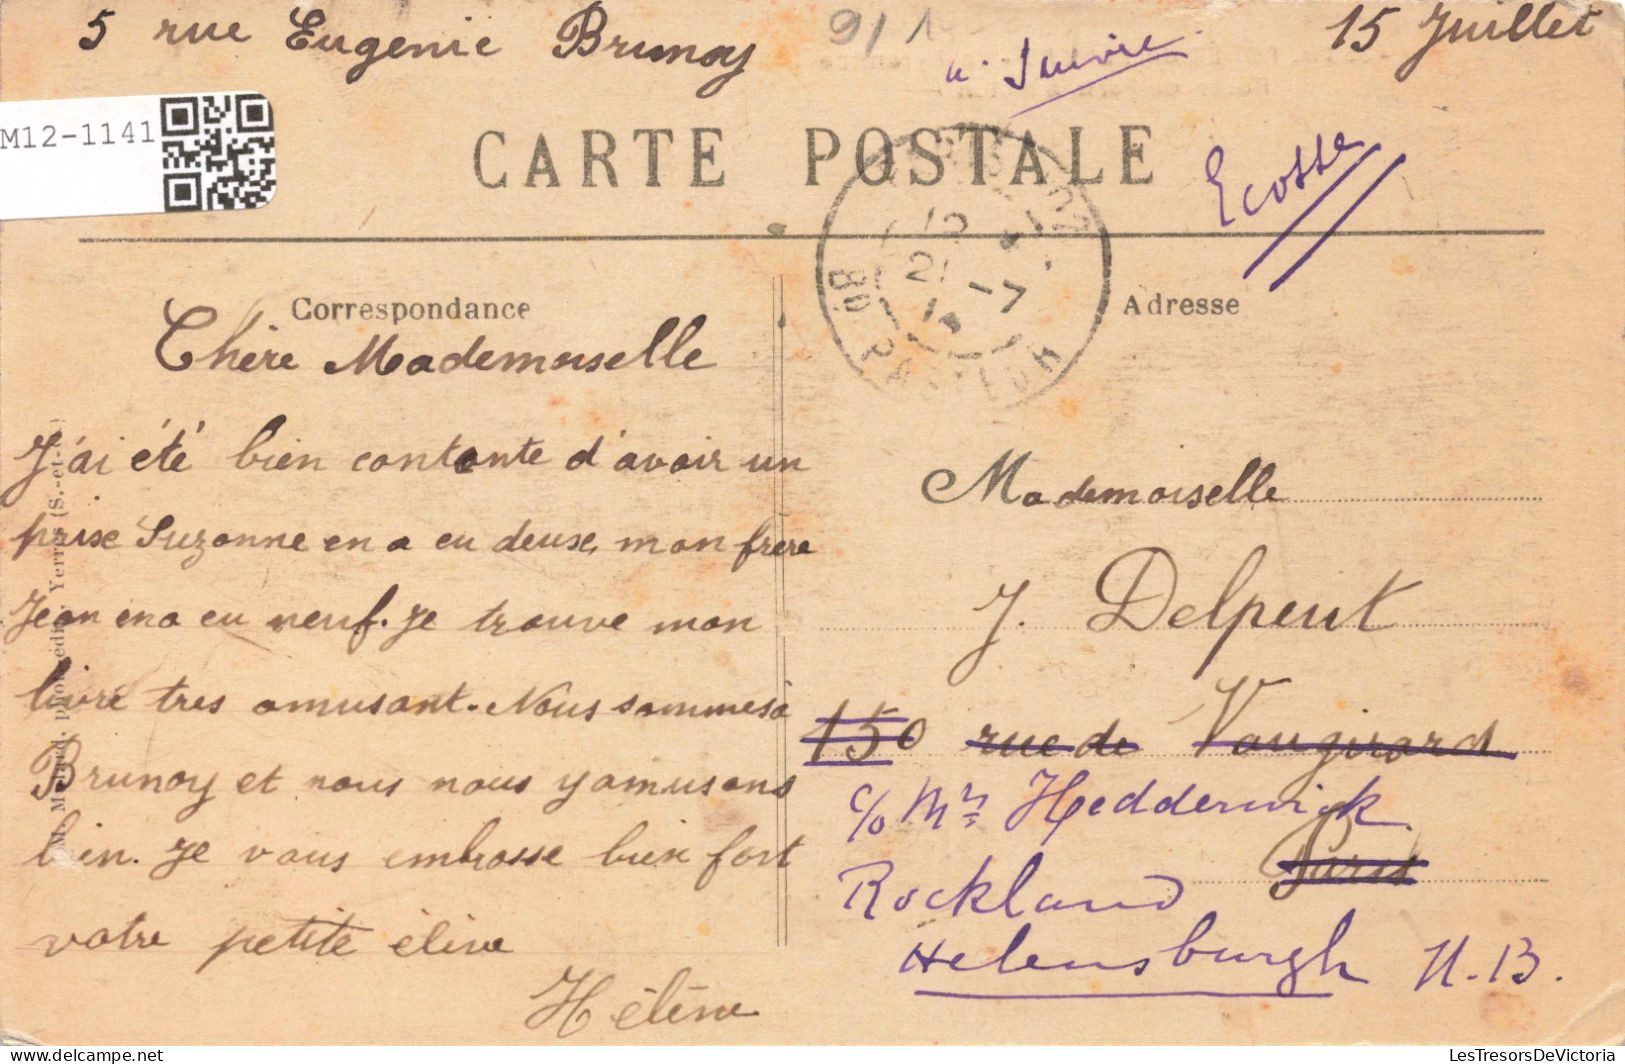 5 rue Eugenie Brunoy
15 Juillet
a. Suivre
M12-1141
CARTE POSTALE
Ecosse
Correspondance
Adresse
21 -7
Chère Mademoiselle
J'ai été bien contente d'avoir un
prix Suzanne en a eu deux, mon frère
Jean en a eu neuf. Je trouve mon
livre tres amusant. Nous sommes à
Brunoy et nous nous y amusons
bien. Je vous embrasse bien fort
votre petite élève
Hélène
Mademoiselle
J. Delpeut
150 rue de Vaugirard
Paris
c/o Mrs Hedderwick
Rockland
Helensburgh N.B.
LesTresorsDeVictoria